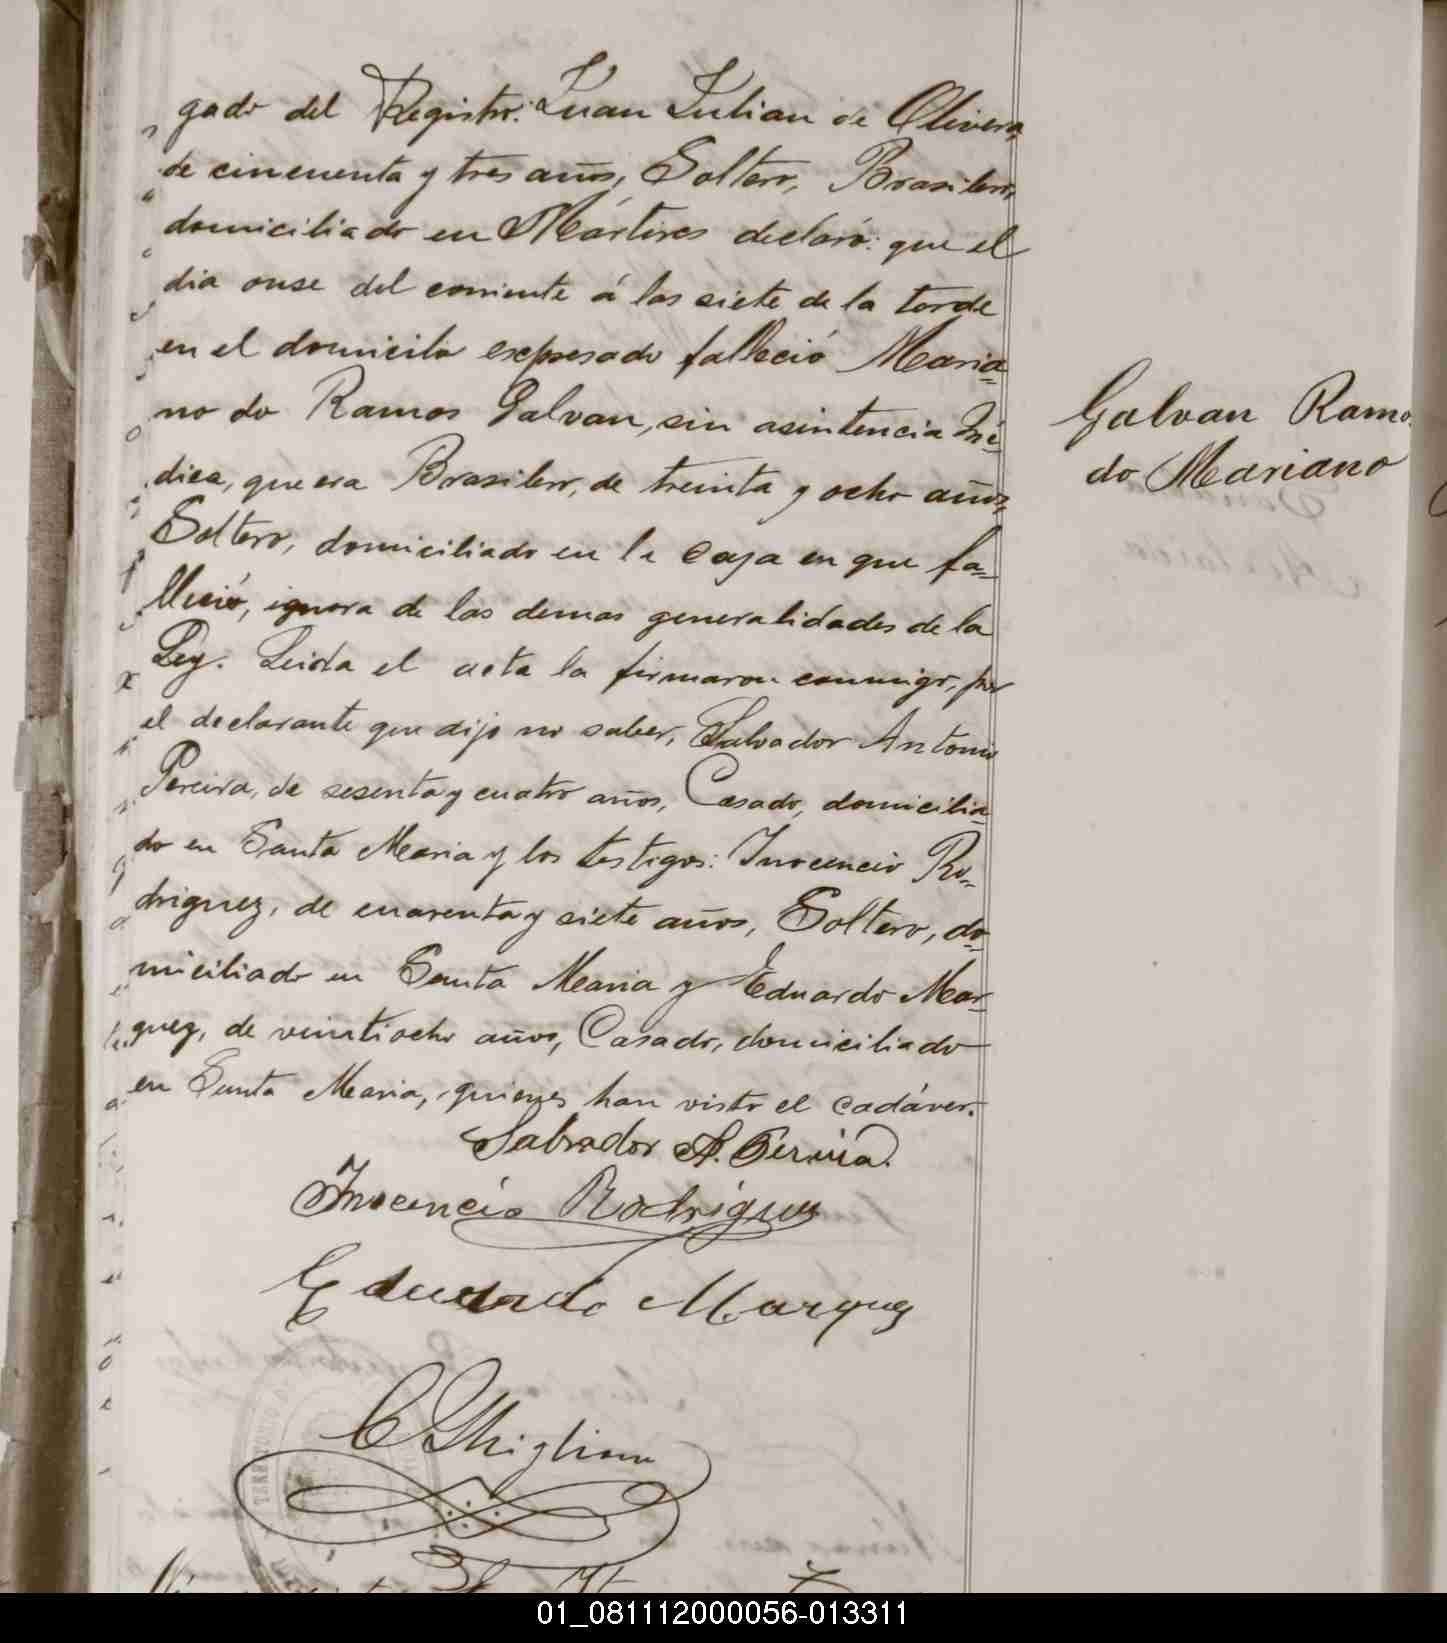 gado del Registro: Juan Julian de Olivera,
de cincuenta y tres años, Soltero, Brasilero,
domiciliado en Mártires declaró: que el
dia onse del corriente á las siete de la tarde
en el domicilio expresado falleció Maria=
no do Ramos Galvan, sin asintencia Mé=
dica, que era Brasilero, de treinta y ocho años,
Soltero, domiciliado en la casa en que fa=
lleció, ignora de las demas generalidades de la
Ley. Leida el acta la firmaron conmigo, por
el declarante que dijo no saber, Salvador Antonio
Pereira, de sesenta y cuatro años, Casado, domicilia=
do en Santa Maria y los testigos: Inocencio Ro=
driguez, de cuarenta y siete años, Soltero, do=
miciliado en Santa Maria y Eduardo Mar=
quez, de veintiocho años, Casado, domiciliado
en Santa Maria, quienes han visto el cadáver.
Salvador A. Pereira.
Inocencio Rodriguez
Eduardo Marquez
Galvan Ramo
do Mariano
01_081112000056-013311